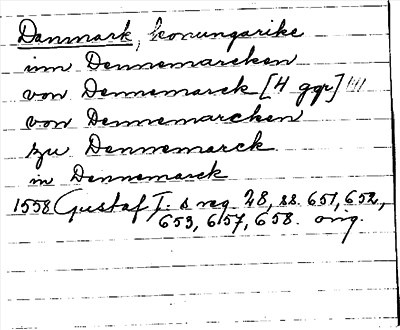 Danmark, konungarike
inn Dennemarcken
von Dennemarck [4 ggr] IIII
von Dennemarcken
zu Dennemarck
in Dennemarck
1558 Gustaf I:s reg. 28, ss. 651, 652,
653, 657, 658. orig.